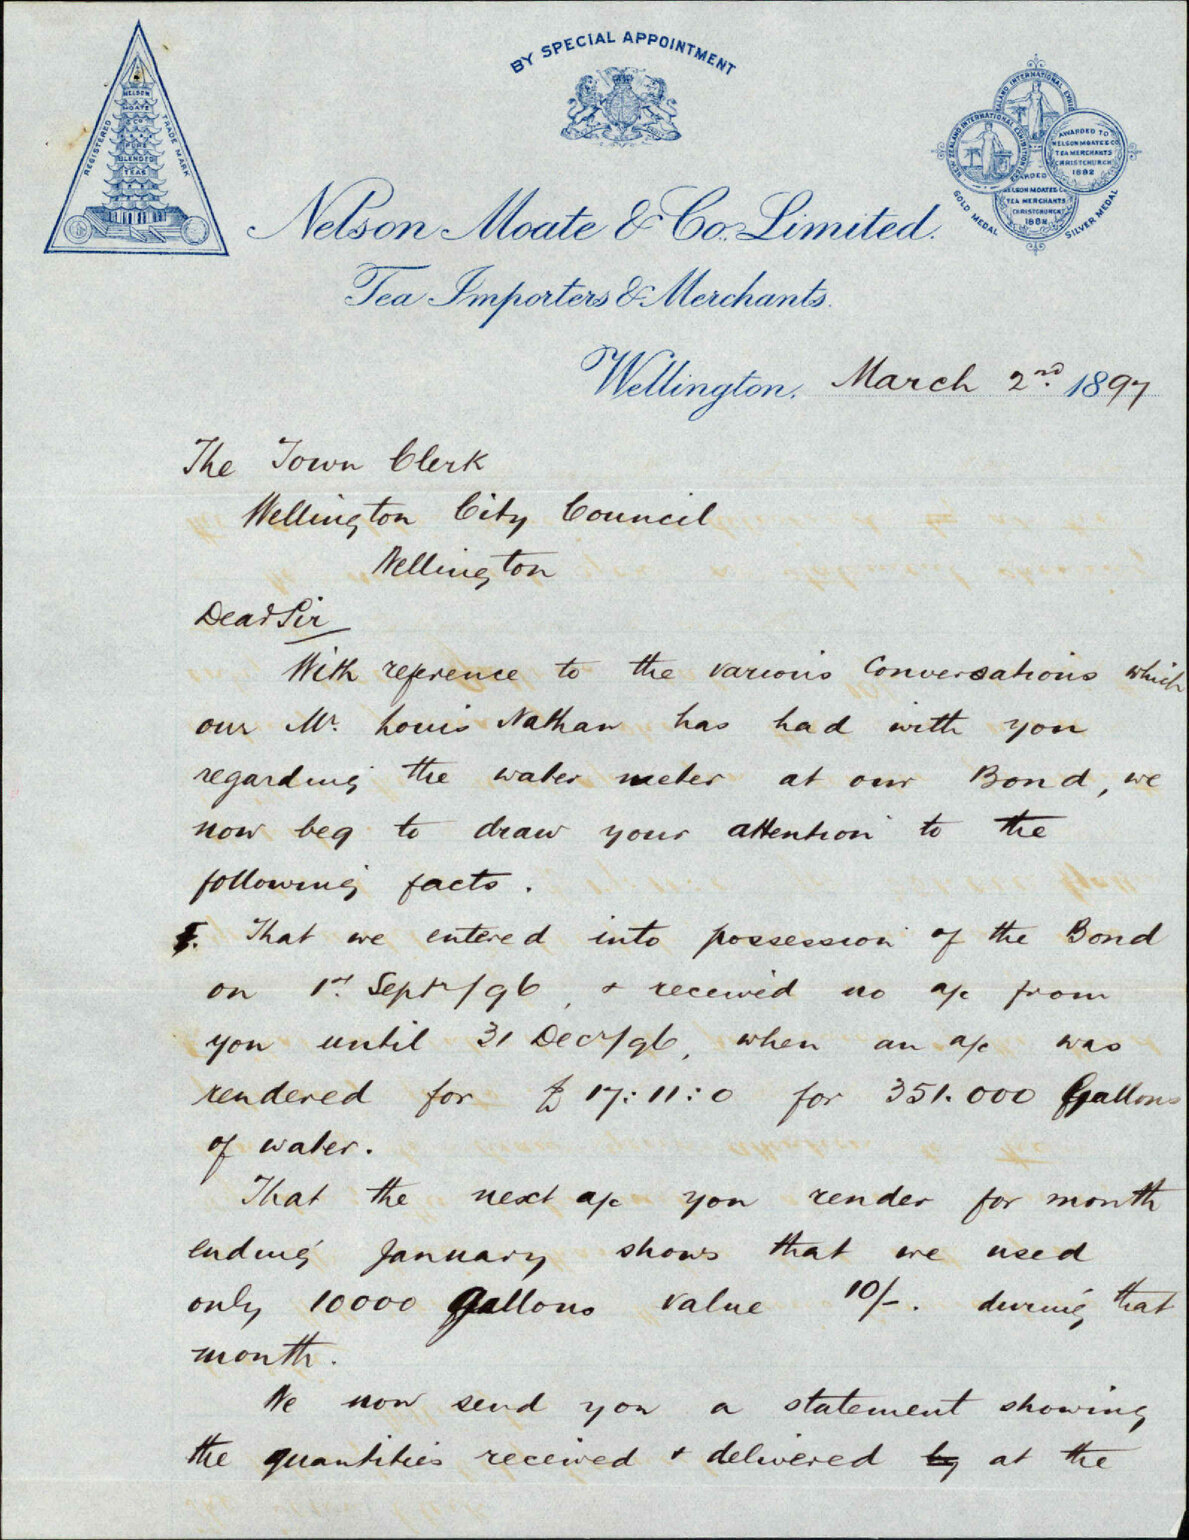 BY SPECIAL APPOINTMENT
REGISTERED TRADE MARK
NELSON
MOATE
& CO
PURE
BLENDED
TEAS
NEW ZEALAND INTERNATIONAL EXHIBITION
AWARDED TO
NELSON MOATE & CO
TEA MERCHANTS
CHRISTCHURCH
1882
NELSON MOATE & Co
TEA MERCHANTS
CHRISTCHURCH
1882
GOLD MEDAL
SILVER MEDAL
Nelson Moate & Co. Limited.
Tea Importers & Merchants.
Wellington, March 2nd 1897
The Town Clerk
Wellington City Council
Wellington
Dear Sir
With reference to the various Conversations which
our Mr. Louis Nathan has had with you
regarding the water meter at our Bond, we
now beg to draw your attention to the
following facts.
I. That we entered into possession of the Bond
on 1st. Septr/96, & received no a/c from
you until 31 Decr/96, when an a/c was
rendered for £17:11:0 for 351.000 Gallons
of water.
That the next a/c you render for month
ending January shows that we used
only 10000 Gallons value 10/-. during that
month.
We now send you a statement showing
the quantities received & delivered by at the